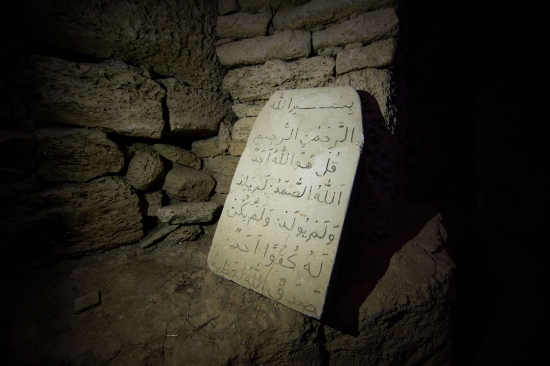 بسم الله
الرَّحْمٰنِ الرَّحِيمِ
قُلْ هُوَ اللَّهُ أَحَدٌ
اَللَّهُ الصَّمَدُ لَمْ يَلِدْ
وَلَمْ يُولَدْ وَلَمْ يَكُنْ
لَهُ كُفُوًا أَحَدٌ
صَدَقَ اللَّهُ